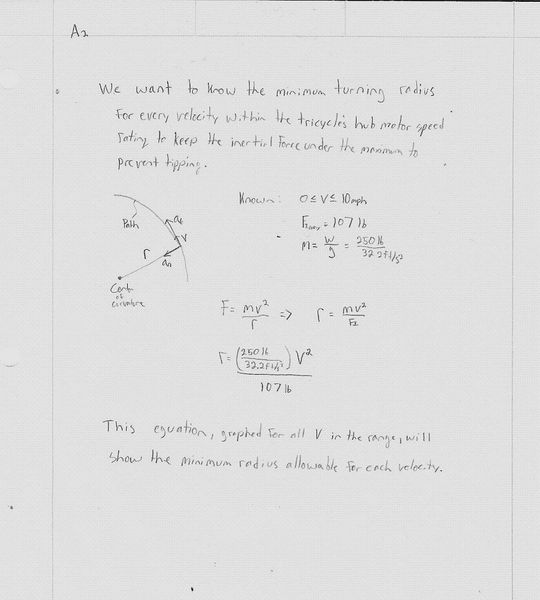 A2
We want to know the minimum turning radius
for every velocity within the tricycle's hub motor speed
rating to keep the inertial force under the maximum to
prevent tipping.
Known: 0 ≤ V ≤ 10mph
Fmax = 107 lb
M = W/g = 250 lb/32.2 ft/s²
Path
at
V
r
an
Center
of
curvature
F = mv²/r => r = mv²/Fx
r = (250 lb/32.2 ft/s²) V²/107 lb
This equation, graphed for all V in the range, will
show the minimum radius allowable for each velocity.